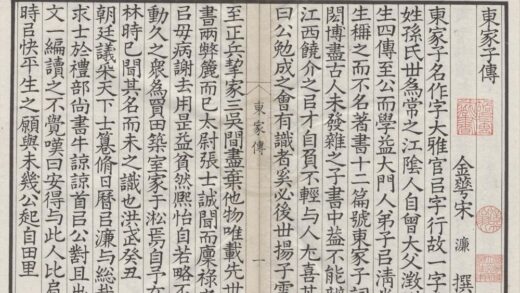 東家子傳
金華宋 濂 撰
東家子名作字大雅官㠯字行故一字
姓孫氏世為常之江陰人自曾大父澂
生四傳至公而學益大門人弟子㠯清尚
生稱之而不名著書十二篇號東家子
閎博盡古人未發雜之子書中葢不能辨
江西饒介之㠯才自負不輕與人尤喜其
曰公勉成之會有識者奚必後世揚子雲
東家傳 一
至正兵挐家三吳間盡棄他物唯載先世
書兩弊簏而已太尉張士誠聞而廩祿
㠯毋病謝去用是益貧然熈怡自若略不
動久之衆為買田築室家于淞焉自予在
林時已聞其名而未之識也洪武癸丑
朝廷議采天下士簒脩日曆㠯濂與總
求士於禮部尚書牛諒諒首㠯公對且出
文一編讀之不覺嘆曰安得与此人比肩
時㠯快平生之願與未幾公起自田里